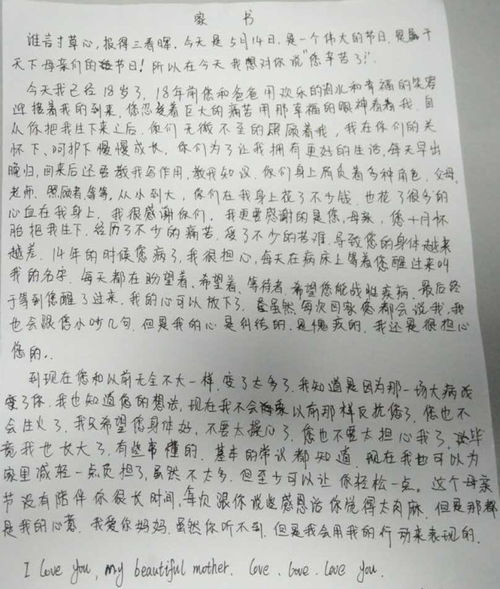 家 书
谁言寸草心,报得三春晖。今天是5月14日,是一个伟大的节日,是属于
天下母亲们的节日!所以在今天我想对你说"您辛苦了"。
今天我已经18岁了,18年前您和爸爸用欢乐的泪水和幸福的笑容
迎接着我的到来,您忍受着巨大的痛苦用那幸福的眼神看着我,自
从你把我生下来之后,你们无微不至的照顾着我,我在你们的关
怀下、呵护下慢慢成长,你们为了让我拥有更好的生活,每天早出
晚归,回来后还要教我写作用,教我知识,你们身上肩负着多种角色,父母,
老师,照顾者,等等,从小到大,你们在我身上花了不少钱,也花了很多的
心血在我身上,我很感谢你们,我更要感谢的是您,母亲,您十月怀
胎把我生下,经历了不少的痛苦,受了不少的苦难,导致您的身体越来
越差,14年的时候您病了,我很担心,每天在病床上等着您醒过来叫
我的名字,每天都在盼望着,希望着,等待者,希望您能战胜疾病,最后终
于等到您醒了过来,我的心可以放下了,虽然每次回家您都会说我,我
也会跟您小吵几句,但是我的心是纠结的,是愧疚的,我还是很担心
您的。
到现在您和以前完全不大一样,变了太多了,我知道是因为那一场大病改
变了你,我也知道您的想法,现在我不会像以前那样反抗您了,您也不
会住火了,我只希望您身体好,不要太操心了,您也不要太担心我了,毕
竟我也长大了,有些事懂的,基本的常识都知道,现在我也可以为
家里减轻一点负担了,虽然不太多,但至少可以让你轻松一点。这个母亲
节没有陪伴你很长时间,每次跟你说些感恩话你觉得太肉麻,但是那都
是我的心意,我爱你妈妈,虽然你听不到,但是我会用我的行动来表现的,
I love you, my beautiful mother. love. love. love you.